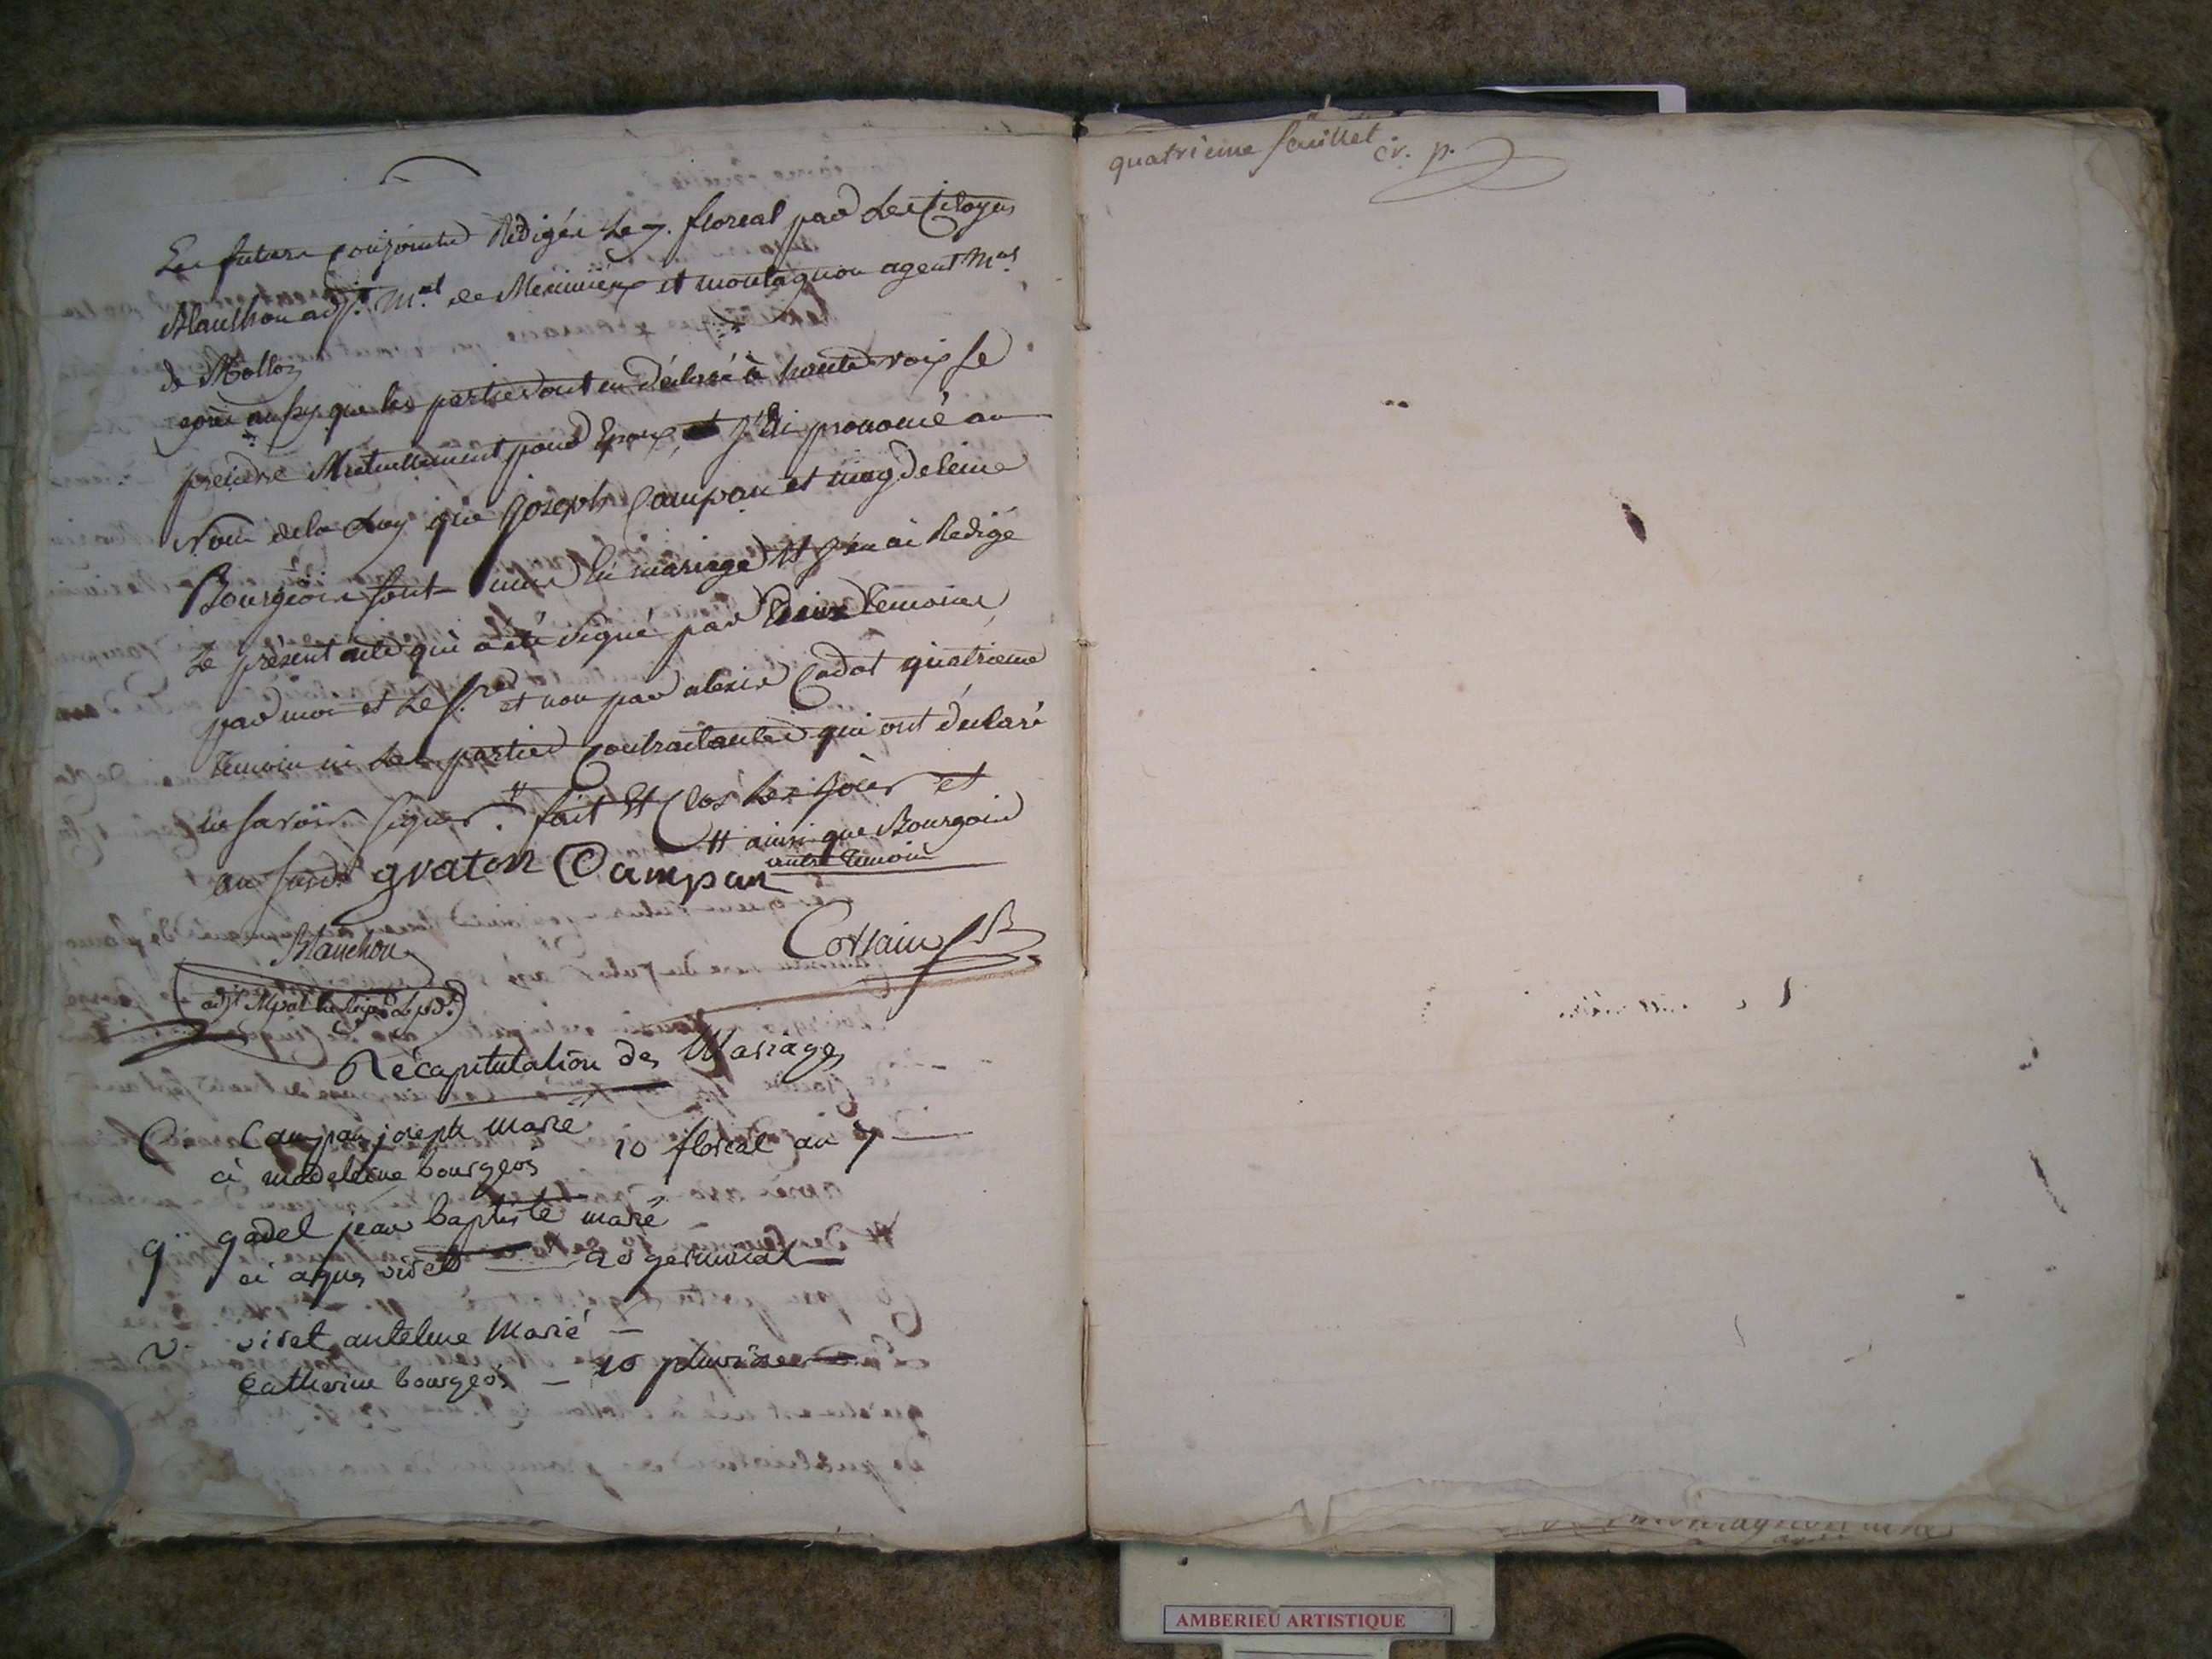 Les futurs conjoints Rédigée Le 7. floreal par Les Citoyens
Manchon adjt. Mal. de Meximieux et montagnon agent Mal
de Mollon
après aussy que les parties ont eu déclaré à haute voix se
prendre Mutuellement pour Epoux, et J'ai prononcé au
Nom de la Loy que Joseph Campan et magdeleine
Bourgeois sont unis en mariage et J'en ai Redigé
Le présent acte qui a été signé par deux temoins
par moi et Le S.re et non par alexis Cadot quatrieme
temoin ni Les parties Contractantes qui ont déclaré
ne savoir signer. # fait Et Clos Les Jour et
an susd. # ainsi que Bourgoin
autre temoin
gvaton Campan
Manchon Corsain
adjt Mpal
Récapitulation des Mariages
C Campan joseph marié
à madeleine bourgeois 10 floreal an 7
g gadel jean baptiste marié
à agnes viret 20 germinal
v. viret antelme Marié
Catherine bourgeois 10 pluviose
quatrième feuillet
cr. p.
AMBERIEU ARTISTIQUE